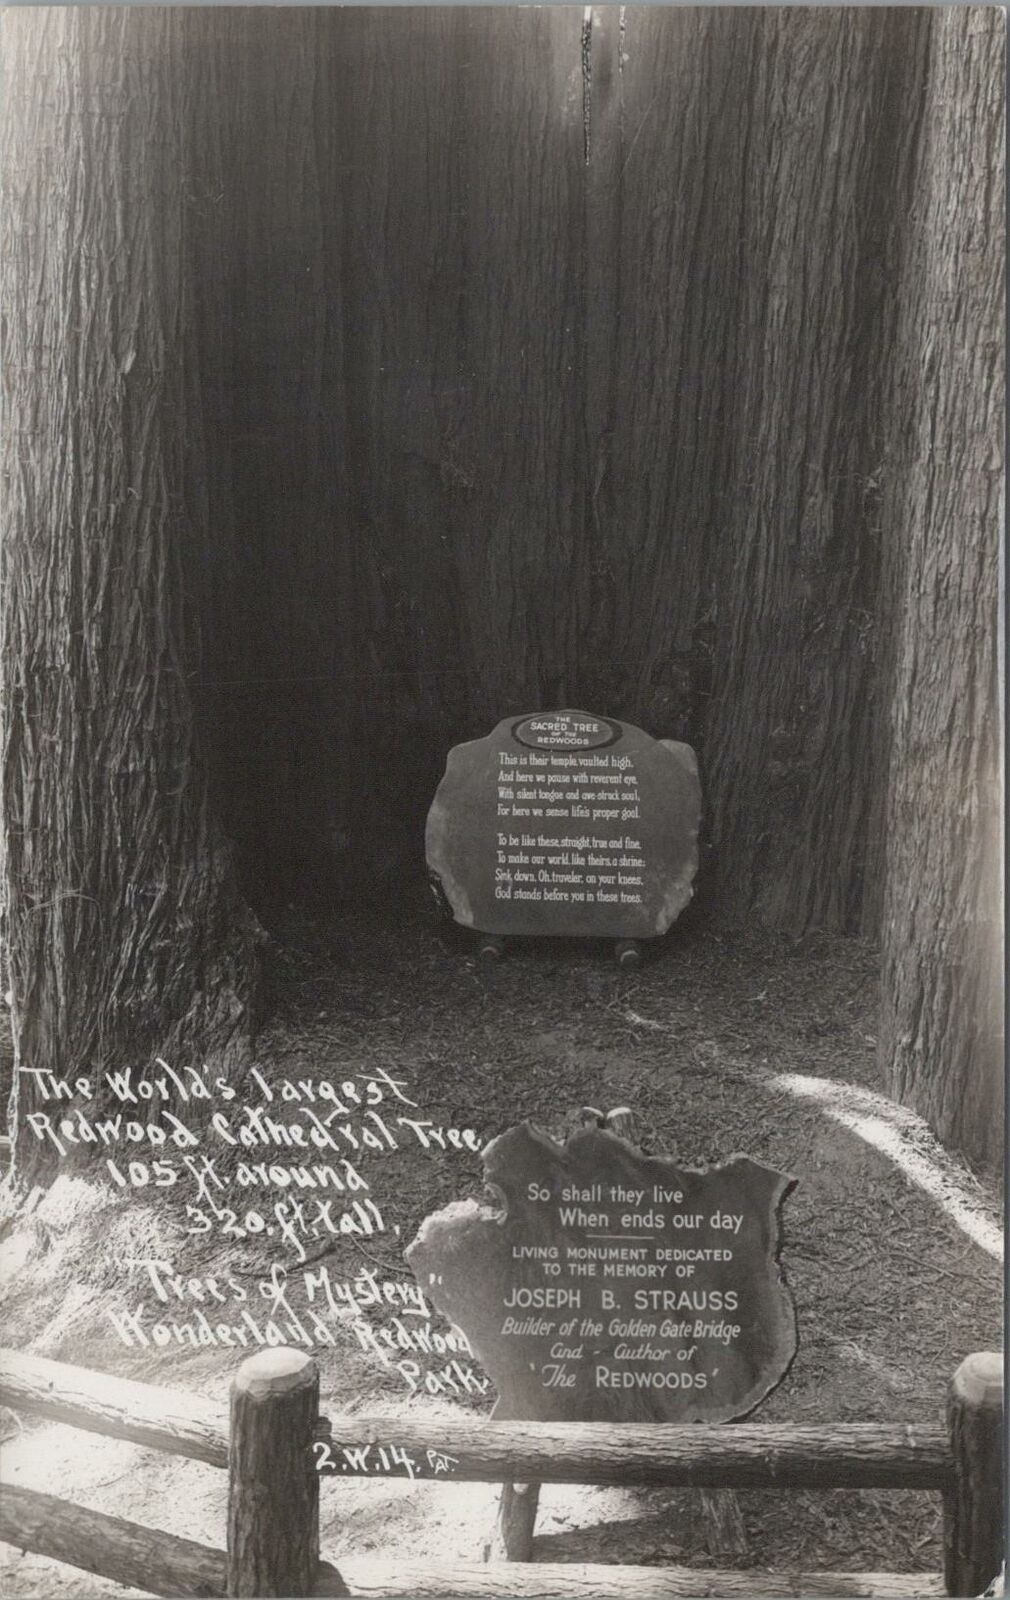 THE
SACRED TREE
OF THE
REDWOODS
This is their temple, vaulted high,
And here we pause with reverent eye,
With silent tongue and awe struck soul,
For here we sense life's proper goal.
To be like these, straight, true and fine,
To make our world, like theirs, a shrine;
Sink down, Oh, traveler, on your knees,
God stands before you in these trees.
The World's largest
Redwood Cathedral Tree
105 ft. around
320. ft. tall.
"Trees of Mystery"
Wonderland Redwood
Park.
So shall they live
When ends our day
LIVING MONUMENT DEDICATED
TO THE MEMORY OF
JOSEPH B. STRAUSS
Builder of the Golden Gate Bridge
and - Author of
'The REDWOODS'
2.W.14. PAT.